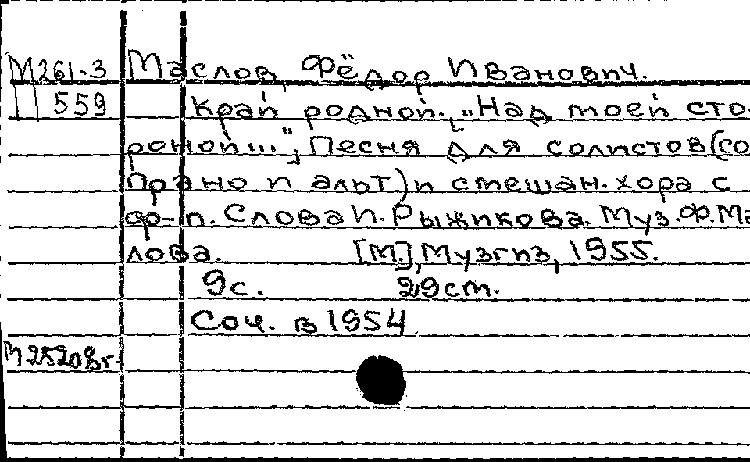 М261-3 Маслов, Фёдор Иванович.
П 559 Край родной. „Над моей сто-
роной..."; Песня для солистов (со
прано и альт) и смешан. хора с
ф-п. Слова И. Рыжикова. Муз. Ф. Ма
лова. [М.], Музгиз, 1955.
9с. 29ст.
Соч. в 1954